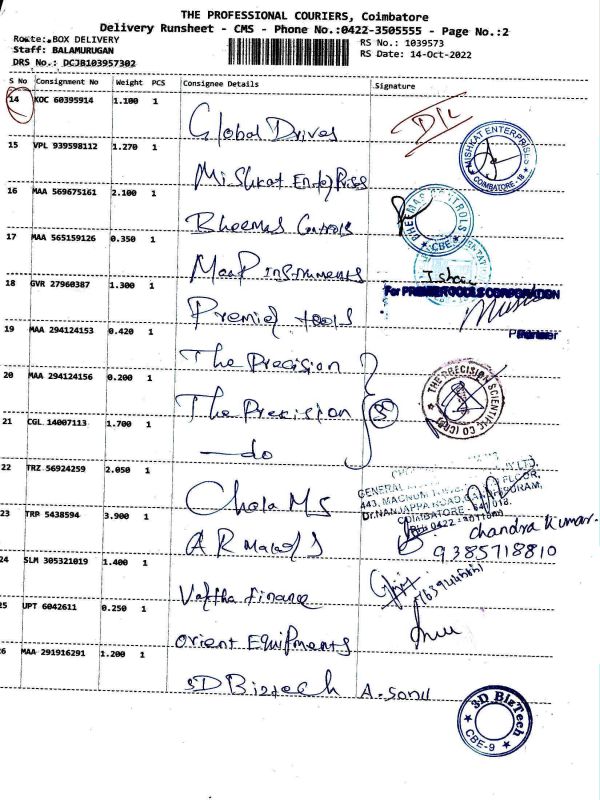 THE PROFESSIONAL COURIERS, Coimbatore
Delivery Runsheet - CMS - Phone No.:0422-3505555 - Page No.:2
Route: BOX DELIVERY
Staff: BALAMURUGAN
DRS No.: DCJB103957302
RS No.: 1039573
RS Date: 14-Oct-2022
S No Consignment No Weight PCS Consignee Details Signature
14 KOC 60395914 1.100 1 Global Drives D/L
15 VPL 939598112 1.270 1 Mishkat Enterprises
MISHKAT ENTERPRISES
COIMBATORE - 18
16 MAA 569675161 2.100 1 Bheemas Controls
BHEEMAS CONTROLS
CBE
17 MAA 565159126 0.350 1 Maap instruments
18 GVR 27960387 1.300 1 Premier tools
For PREMIER TOOLS CORPORATION
Partner
19 MAA 294124153 0.420 1 The Precision
20 MAA 294124156 0.200 1 The Precision
THE PRECISION SCIENTIFIC CO (CBE)
21 CGL 14007113 1.700 1 —do
22 TRZ 56924259 2.050 1 Chola MS
443, MAGNUM
Dr.NANJAPPA ROAD,
COIMBATORE - 641 018.
23 TRP 5438594 3.900 1 A R
chandra kumar.
9385718810
24 SLM 305321019 1.400 1 finance
25 UPT 6042611 0.250 1 Orient Equipments
26 MAA 291916291 1.200 1 3D Biztech A. Sonu
3D BizTech
CBE-9